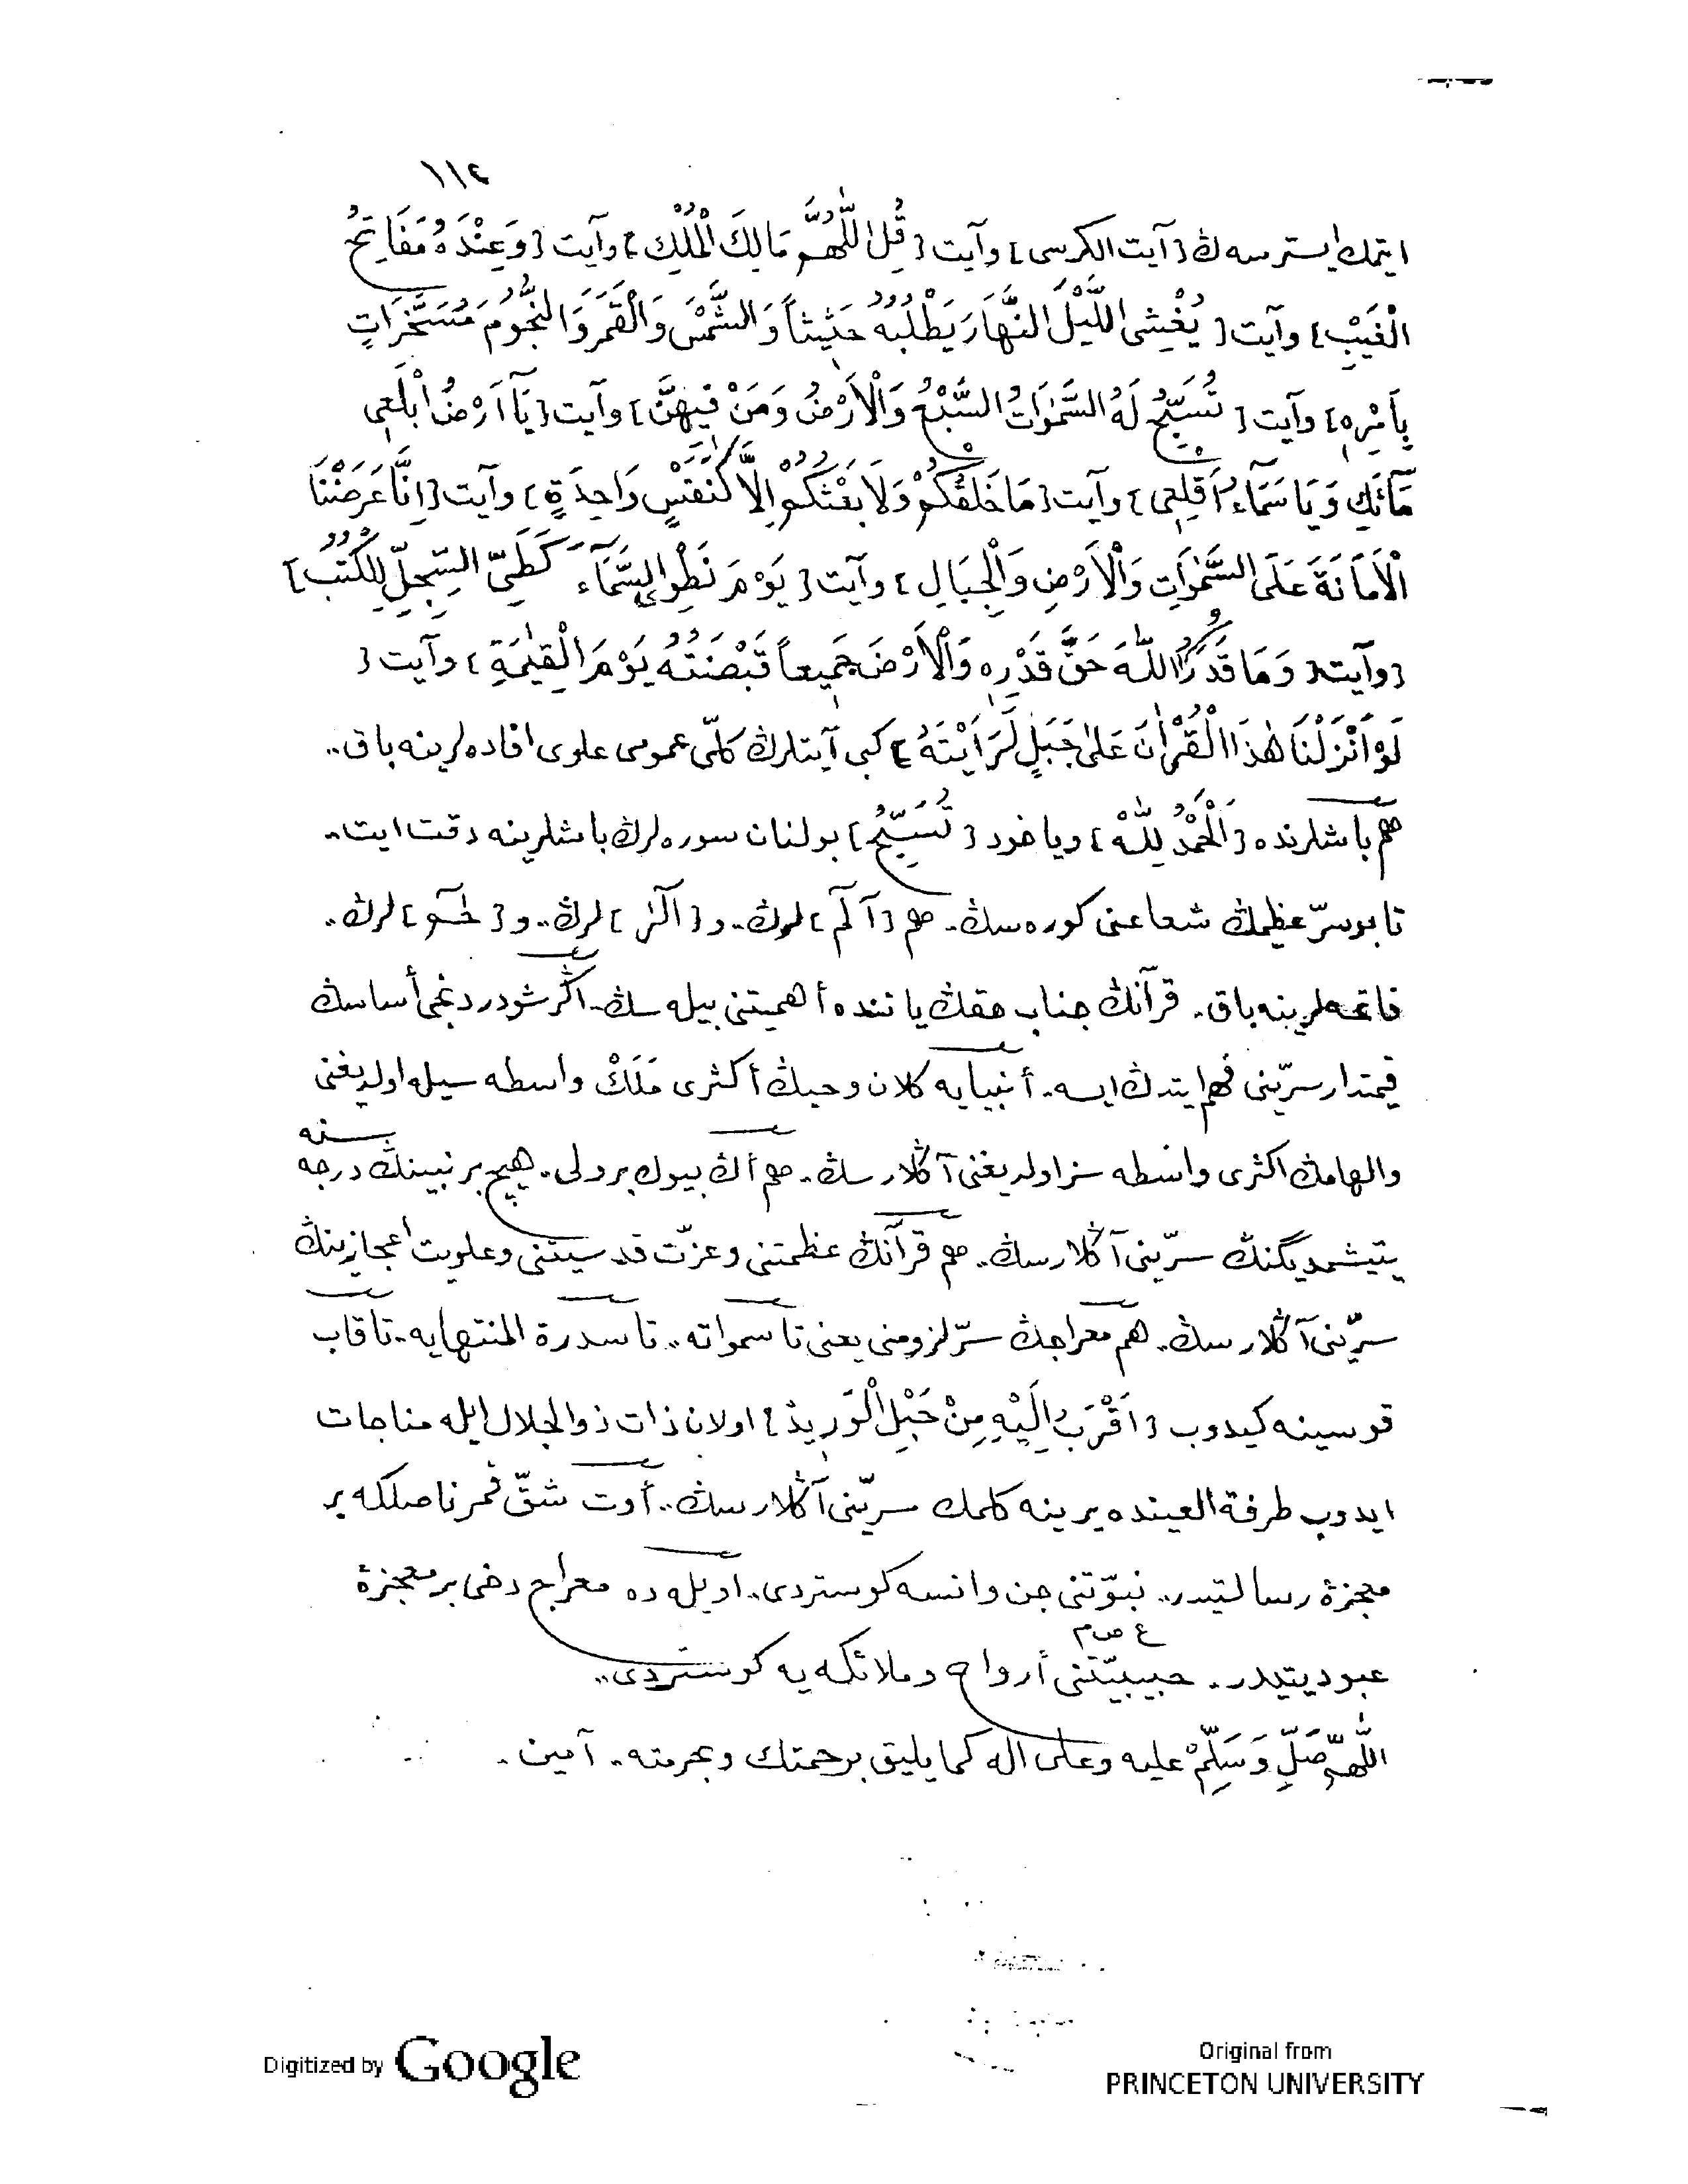 ١١٤
ايتمك ايسترسه ڭ [آيت الكرسى] وآيت [قُلِ اللّٰهُمَّ مَالِكَ الْمُلْكِ] وآيت [وَعِنْدَهُ مَفَاتِحُ
الْغَيْبِ] وآيت [يُغْشِى الَّيْلَ النَّهَارَ يَطْلُبُهُ حَثِيثاً وَالشَّمْسَ وَالْقَمَرَ وَالنُّجُومَ مُسَخَّرَاتٍ
بِاَمْرِهِ] وآيت [تُسَبِّحُ لَهُ السَّمٰوَاتُ السَّبْعُ وَالْاَرْضُ وَمَنْ فِيهِنَّ] وآيت [يَٓا اَرْضُ ابْلَعِى
مَٓائَكِ وَيَا سَمَٓاءُ اَقْلِعِى] وآيت [مَا خَلْقُكُمْ وَلَا بَعْثُكُمْ اِلَّا كَنَفْسٍ وَاحِدَةٍ] وآيت [اِنَّا عَرَضْنَا
الْاَمَانَةَ عَلَى السَّمٰوَاتِ وَالْاَرْضِ وَالْجِبَالِ] وآيت [يَوْمَ نَطْوِى السَّمَٓاءَ كَطَىِّ السِّجِلِّ لِلْكُتُبِ]
[وآيت [وَمَا قَدَرُوا اللّٰهَ حَقَّ قَدْرِهِ وَالْاَرْضُ جَمِيعاً قَبْضَتُهُ يَوْمَ الْقِيٰمَةِ] وآيت [
لَوْ اَنْزَلْنَا هٰذَا الْقُرْاٰنَ عَلٰى جَبَلٍ لَرَاَيْتَهُ] كبى آيتلرڭ كلّى عمومى علوى افاده لرينه باق..
هم باشلرنده [اَلْحَمْدُ لِلّٰهْ] وياخود [تُسَبِّحُ] بولنان سوره لرڭ باشلرينه دقت ايت..
تا بو سرّ عظيمڭ شعاعنى كوره سڭ. هم [آلٓمٓ] لرڭ.. و [الٓرٰ] لرڭ.. و [حٰمٓ] لرڭ.
فاتحه لرينه باق. قرآنڭ جناب حقڭ ياننده أهميتنى بيله سڭ. اگر شو دردنجى أساسڭ
قيمتدار سرّينى فهم ايتدڭ ايسه. أنبيايه كلان وحيڭ أكثرى مَلَكْ واسطه سيله اولديغنى
والهامڭ اكثرى واسطه سز اولديغنى آڭلارسڭ. هم أڭ بيوك بر ولى. هيچ بر نبينڭ درجه سنه
يتيشمديگنڭ سرّينى آڭلارسڭ. هم قرآنڭ عظمتنى وعزّت قدسيتنى وعلويت اعجازينڭ
سرّينى آڭلارسڭ. هم معراجڭ سرّ لزومنى يعنى تا سمواته.. تا سدرة المنتهايه.. تا قاب
قوسينه كيدوب [اَقْرَبُ اِلَيْهِ مِنْ حَبْلِ الْوَرِيدْ] اولان ذات ذوالجلال ايله مناجات
ايدوب طرفة العينده يرينه كلمك سرّينى آڭلارسڭ.. أوت شقّ قمر ناصلكه بر
معجزۀ رسالتيدر.. نبوّتنى جن وانسه كوستردى.. اويله ده معراج دخى بر معجزۀ
عبوديتيدر. حبيبيّتنى أرواح وملائكه يه كوستردى..
ع ص م
اللّٰهمّ صَلِّ وَسَلِّمْ عليه وعلى اله كما يليق برحمتك وبحرمته. آمين.
Digitized by Google
Original from
PRINCETON UNIVERSITY